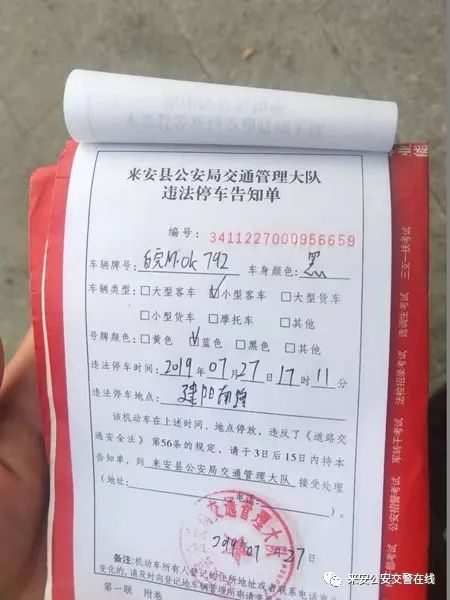 来安县公安局交通管理大队
违法停车告知单
编号: 3411227000956659
车辆牌号: 皖M·0K792 车身颜色: 黑
车辆类型: □大型客车 ☑小型客车 □大型货车
□小型货车 □摩托车 □其他
号牌颜色: □黄色 ☑蓝色 □黑色 □其他
违法停车时间: 2019年07月27日17时11分
违法停车地点: 建阳南路
该机动车在上述时间、地点停放，违反了《道路交
通安全法》第56条的规定，请于3日后15日内持本
告知单，到 来安县公安局交通管理大队 接受处理
(地址: 电话:
公安局交通管理大队
2019年07月27日
备注: 机动车所有人登记的住所地址或者联系电话发生
变化的，请及时向登记地车辆管理所申请变更
第一联 附卷
业
能
三支一扶考试
选调生考试
法检招录考试
军转干考试
公安招警考试
来安公安交警在线